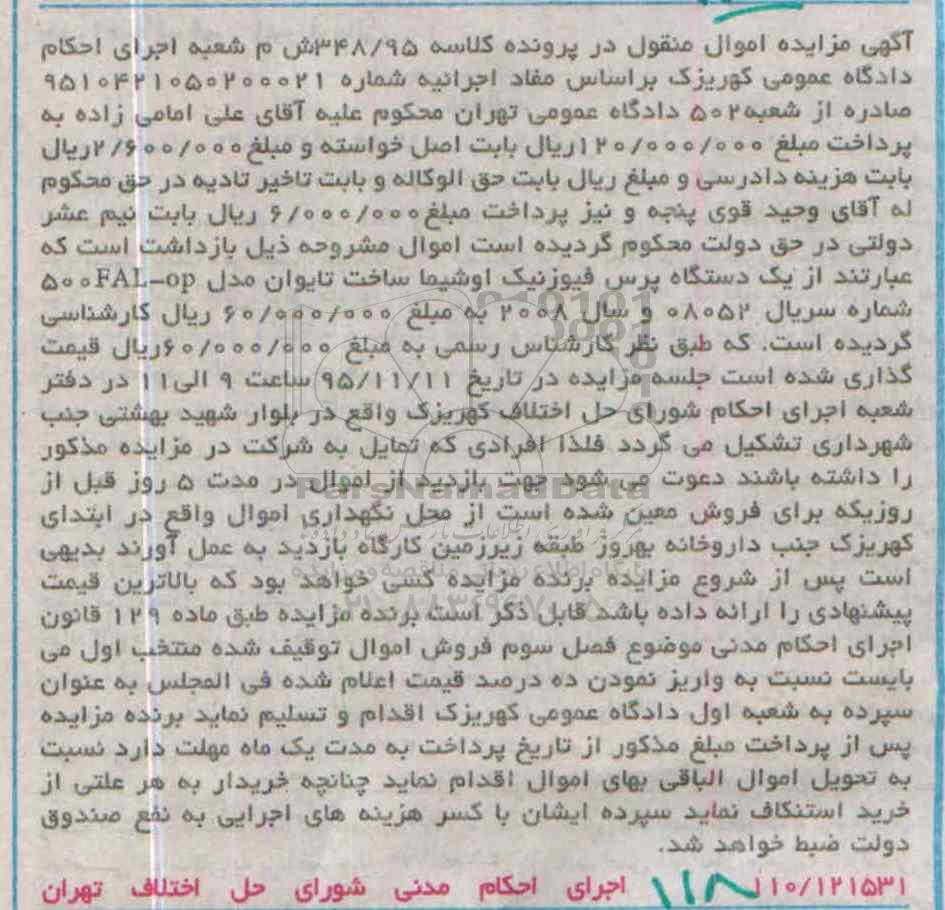 آگهی مزایده اموال منقول در پرونده کلاسه ۳۴۸/۹۵ش م شعبه اجرای احکام
دادگاه عمومی کهریزک براساس مفاد اجرائیه شماره ۹۵۱۰۴۲۱۰۵۰۲۰۰۰۲۱
صادره از شعبه۵۰۲ دادگاه عمومی تهران محکوم علیه آقای علی امامی زاده به
پرداخت مبلغ ۱۲۰/۰۰۰/۰۰۰ریال بابت اصل خواسته و مبلغ۲/۶۰۰/۰۰۰ریال
بابت هزینه دادرسی و مبلغ ریال بابت حق الوکاله و بابت تاخیر تادیه در حق محکوم
له آقای وحید قوی پنجه و نیز پرداخت مبلغ۶/۰۰۰/۰۰۰ ریال بابت نیم عشر
دولتی در حق دولت محکوم گردیده است اموال مشروحه ذیل بازداشت است که
عبارتند از یک دستگاه پرس فیوزنیک اوشیما ساخت تایوان مدل ۵۰۰FAL-op
شماره سریال ۰۸۰۵۲ و سال ۲۰۰۸ به مبلغ ۶۰/۰۰۰/۰۰۰ ریال کارشناسی
گردیده است. که طبق نظر کارشناس رسمی به مبلغ ۶۰/۰۰۰/۰۰۰ریال قیمت
گذاری شده است جلسه مزایده در تاریخ ۹۵/۱۱/۱۱ ساعت ۹ الی۱۱ در دفتر
شعبه اجرای احکام شورای حل اختلاف کهریزک واقع در بلوار شهید بهشتی جنب
شهرداری تشکیل می گردد فلذا افرادی که تمایل به شرکت در مزایده مذکور
را داشته باشند دعوت می شود جهت بازدید از اموال در مدت ۵ روز قبل از
روزیکه برای فروش معین شده است از محل نگهداری اموال واقع در ابتدای
کهریزک جنب داروخانه بهروز طبقه زیرزمین کارگاه بازدید به عمل آورند بدیهی
است پس از شروع مزایده برنده مزایده کسی خواهد بود که بالاترین قیمت
پیشنهادی را ارائه داده باشد قابل ذکر است برنده مزایده طبق ماده ۱۲۹ قانون
اجرای احکام مدنی موضوع فصل سوم فروش اموال توقیف شده منتخب اول می
بایست نسبت به واریز نمودن ده درصد قیمت اعلام شده فی المجلس به عنوان
سپرده به شعبه اول دادگاه عمومی کهریزک اقدام و تسلیم نماید برنده مزایده
پس از پرداخت مبلغ مذکور از تاریخ پرداخت به مدت یک ماه مهلت دارد نسبت
به تحویل اموال الباقی بهای اموال اقدام نماید چنانچه خریدار به هر علتی از
خرید استنکاف نماید سپرده ایشان با کسر هزینه های اجرایی به نفع صندوق
دولت ضبط خواهد شد.
۱۱۰/۱۲۱۵۳۱ اجرای احکام مدنی شورای حل اختلاف تهران
ParsNamadData